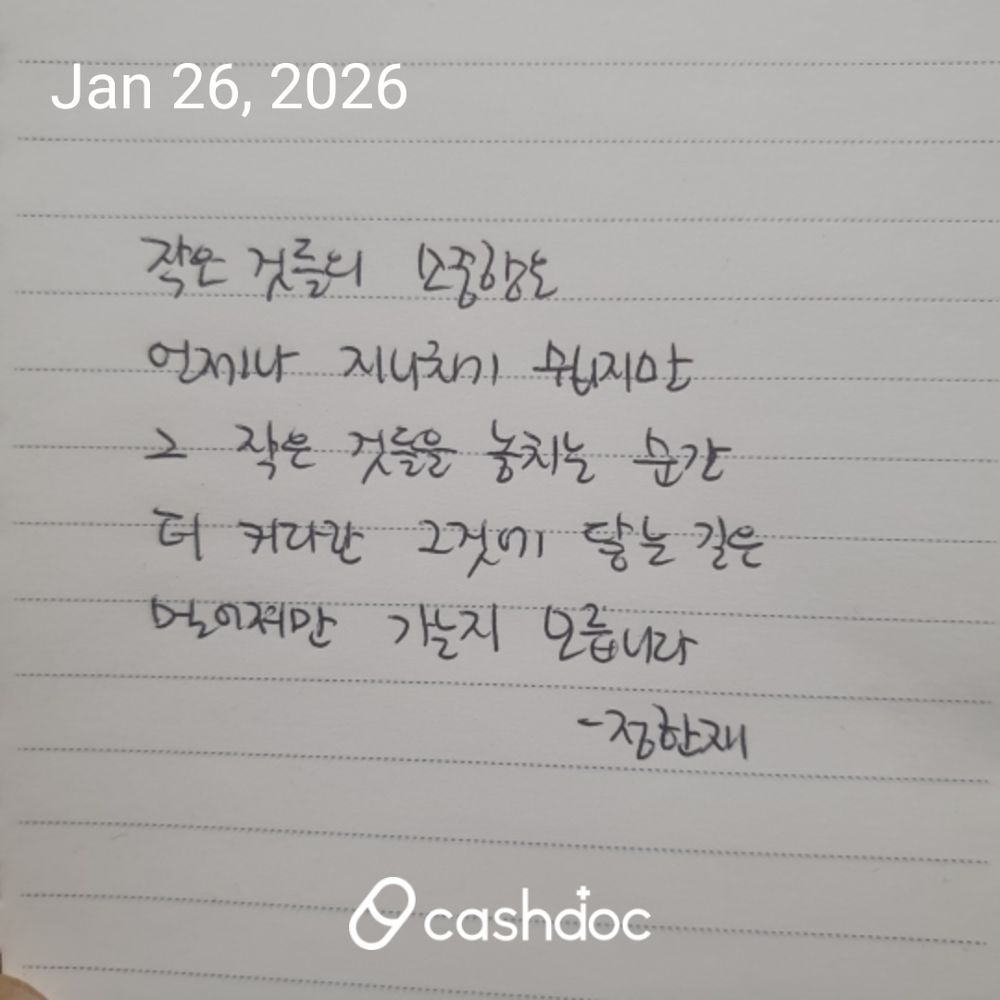 Jan 26, 2026
작은 것들의 소중함은
언제나 지나치기 쉽지만
그 작은 것들을 놓치는 순간
더 커다란 그것에 닿는 길은
멀어져만 가는지 모릅니다
-정한재
cashdoc